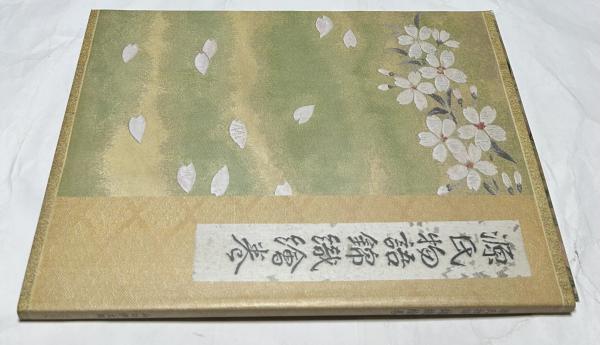 源氏物語錦織繪巻